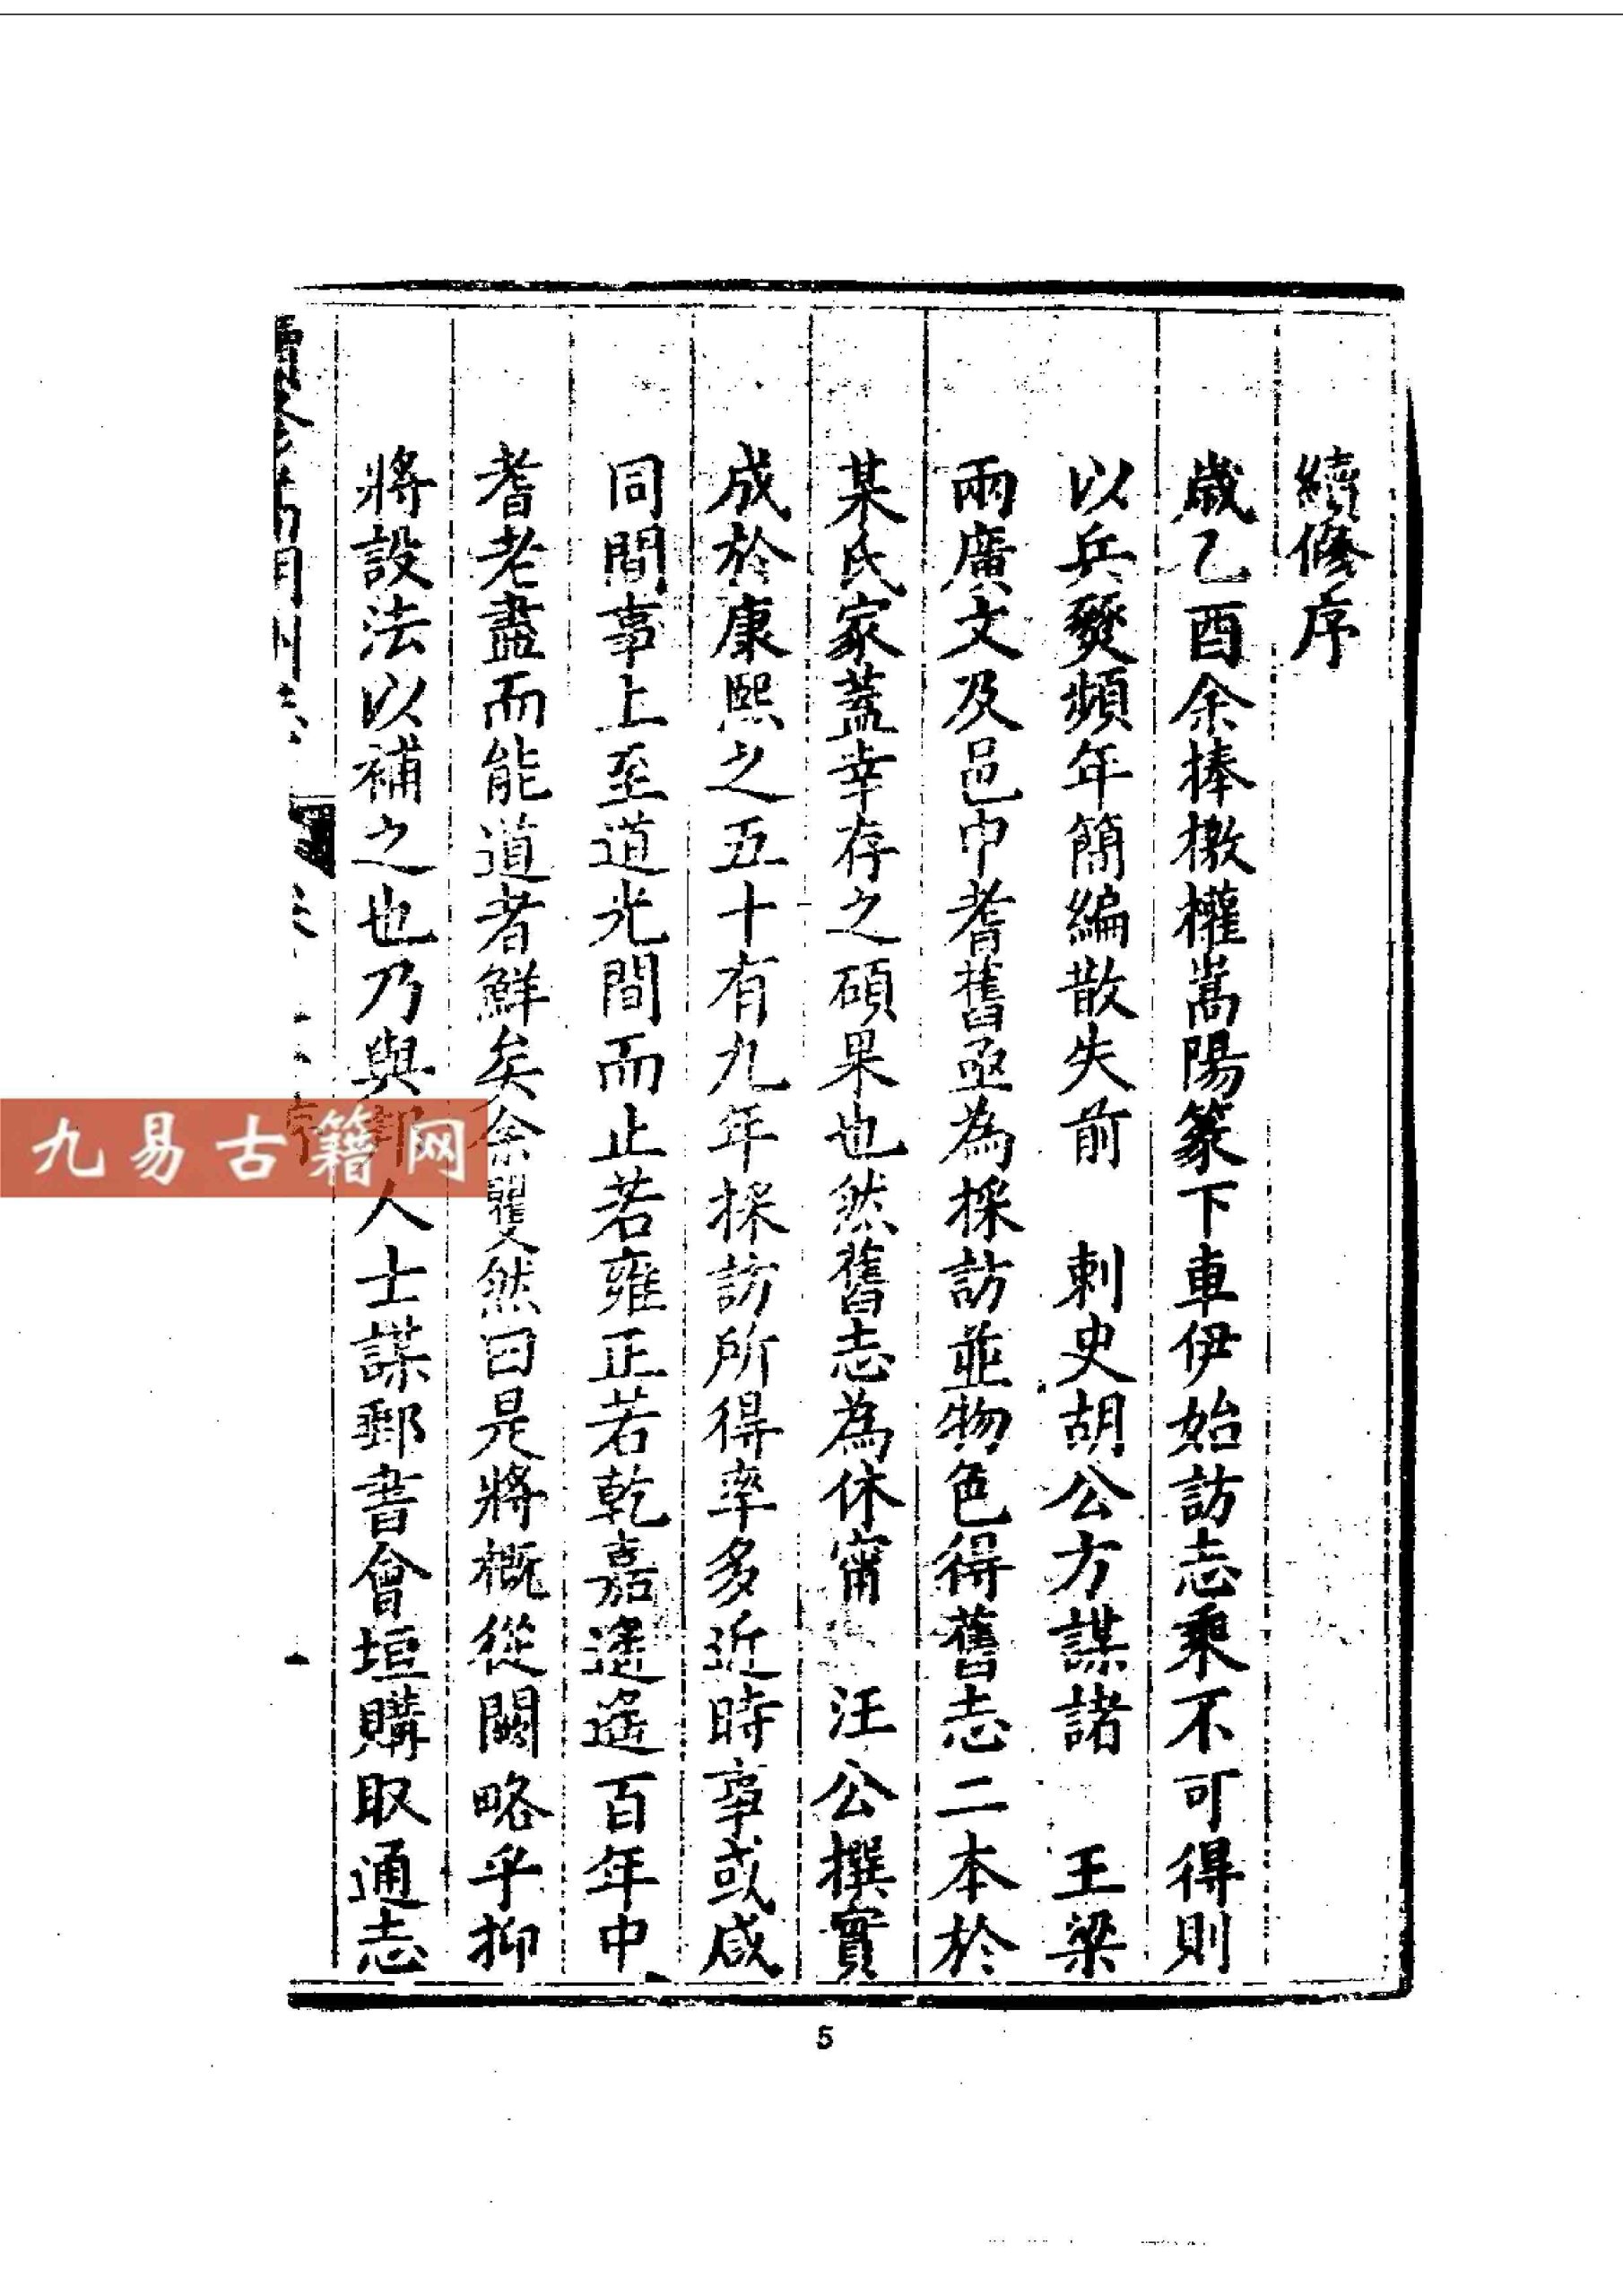 續修序
歲乙酉余捧檄權嵩陽篆下車伊始訪志乘不可得則
以兵燹頻年簡編散失前 刺史胡公方謀諸 王梁
兩廣文及邑中耆舊亟為採訪並物色得舊志二本於
某氏家蓋幸存之碩果也然舊志為休甯 汪公撰實
成於康熙之五十有九年採訪所得率多近時事或咸
同間事上至道光間而止若雍正若乾嘉遙遙百年中
耆老盡而能道者鮮矣余瞿然曰是將概從闕略乎抑
將設法以補之也乃與人士謀郵書會垣購取通志
九易古籍网
5